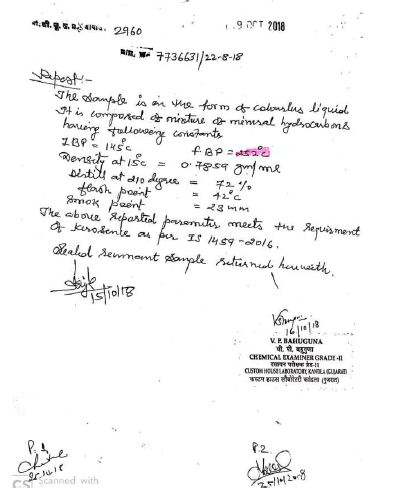 2960
9 OCT 2018
7736631/22-8-18
Report:-
The Sample is in the form of colourless liquid
It is composed of mixture of mineral hydrocarbons
having following constants
IBP = 145°C FBP = 252°C
Density at 15°C = 0.7859 gm/ml
Distill at 210 degree = 72%
flash point = 42°C
Smok point = 23 mm
The above reported parameter meets the requirment
of Kerosence as per IS 1459-2016.
Sealed remnant sample returned herewith.
15/10/18
16/10/18
V. P. BAHUGUNA
वी. पी. बहुगुणा
CHEMICAL EXAMINER GRADE -II
रसायन परीक्षक ग्रेड-II
CUSTOM HOUSE LABORATORY, KANDLA (GUJARAT)
कस्टम हाउस लौबोरेटरी कांडला (गुजरात)
P.1
P.2
CS Scanned with